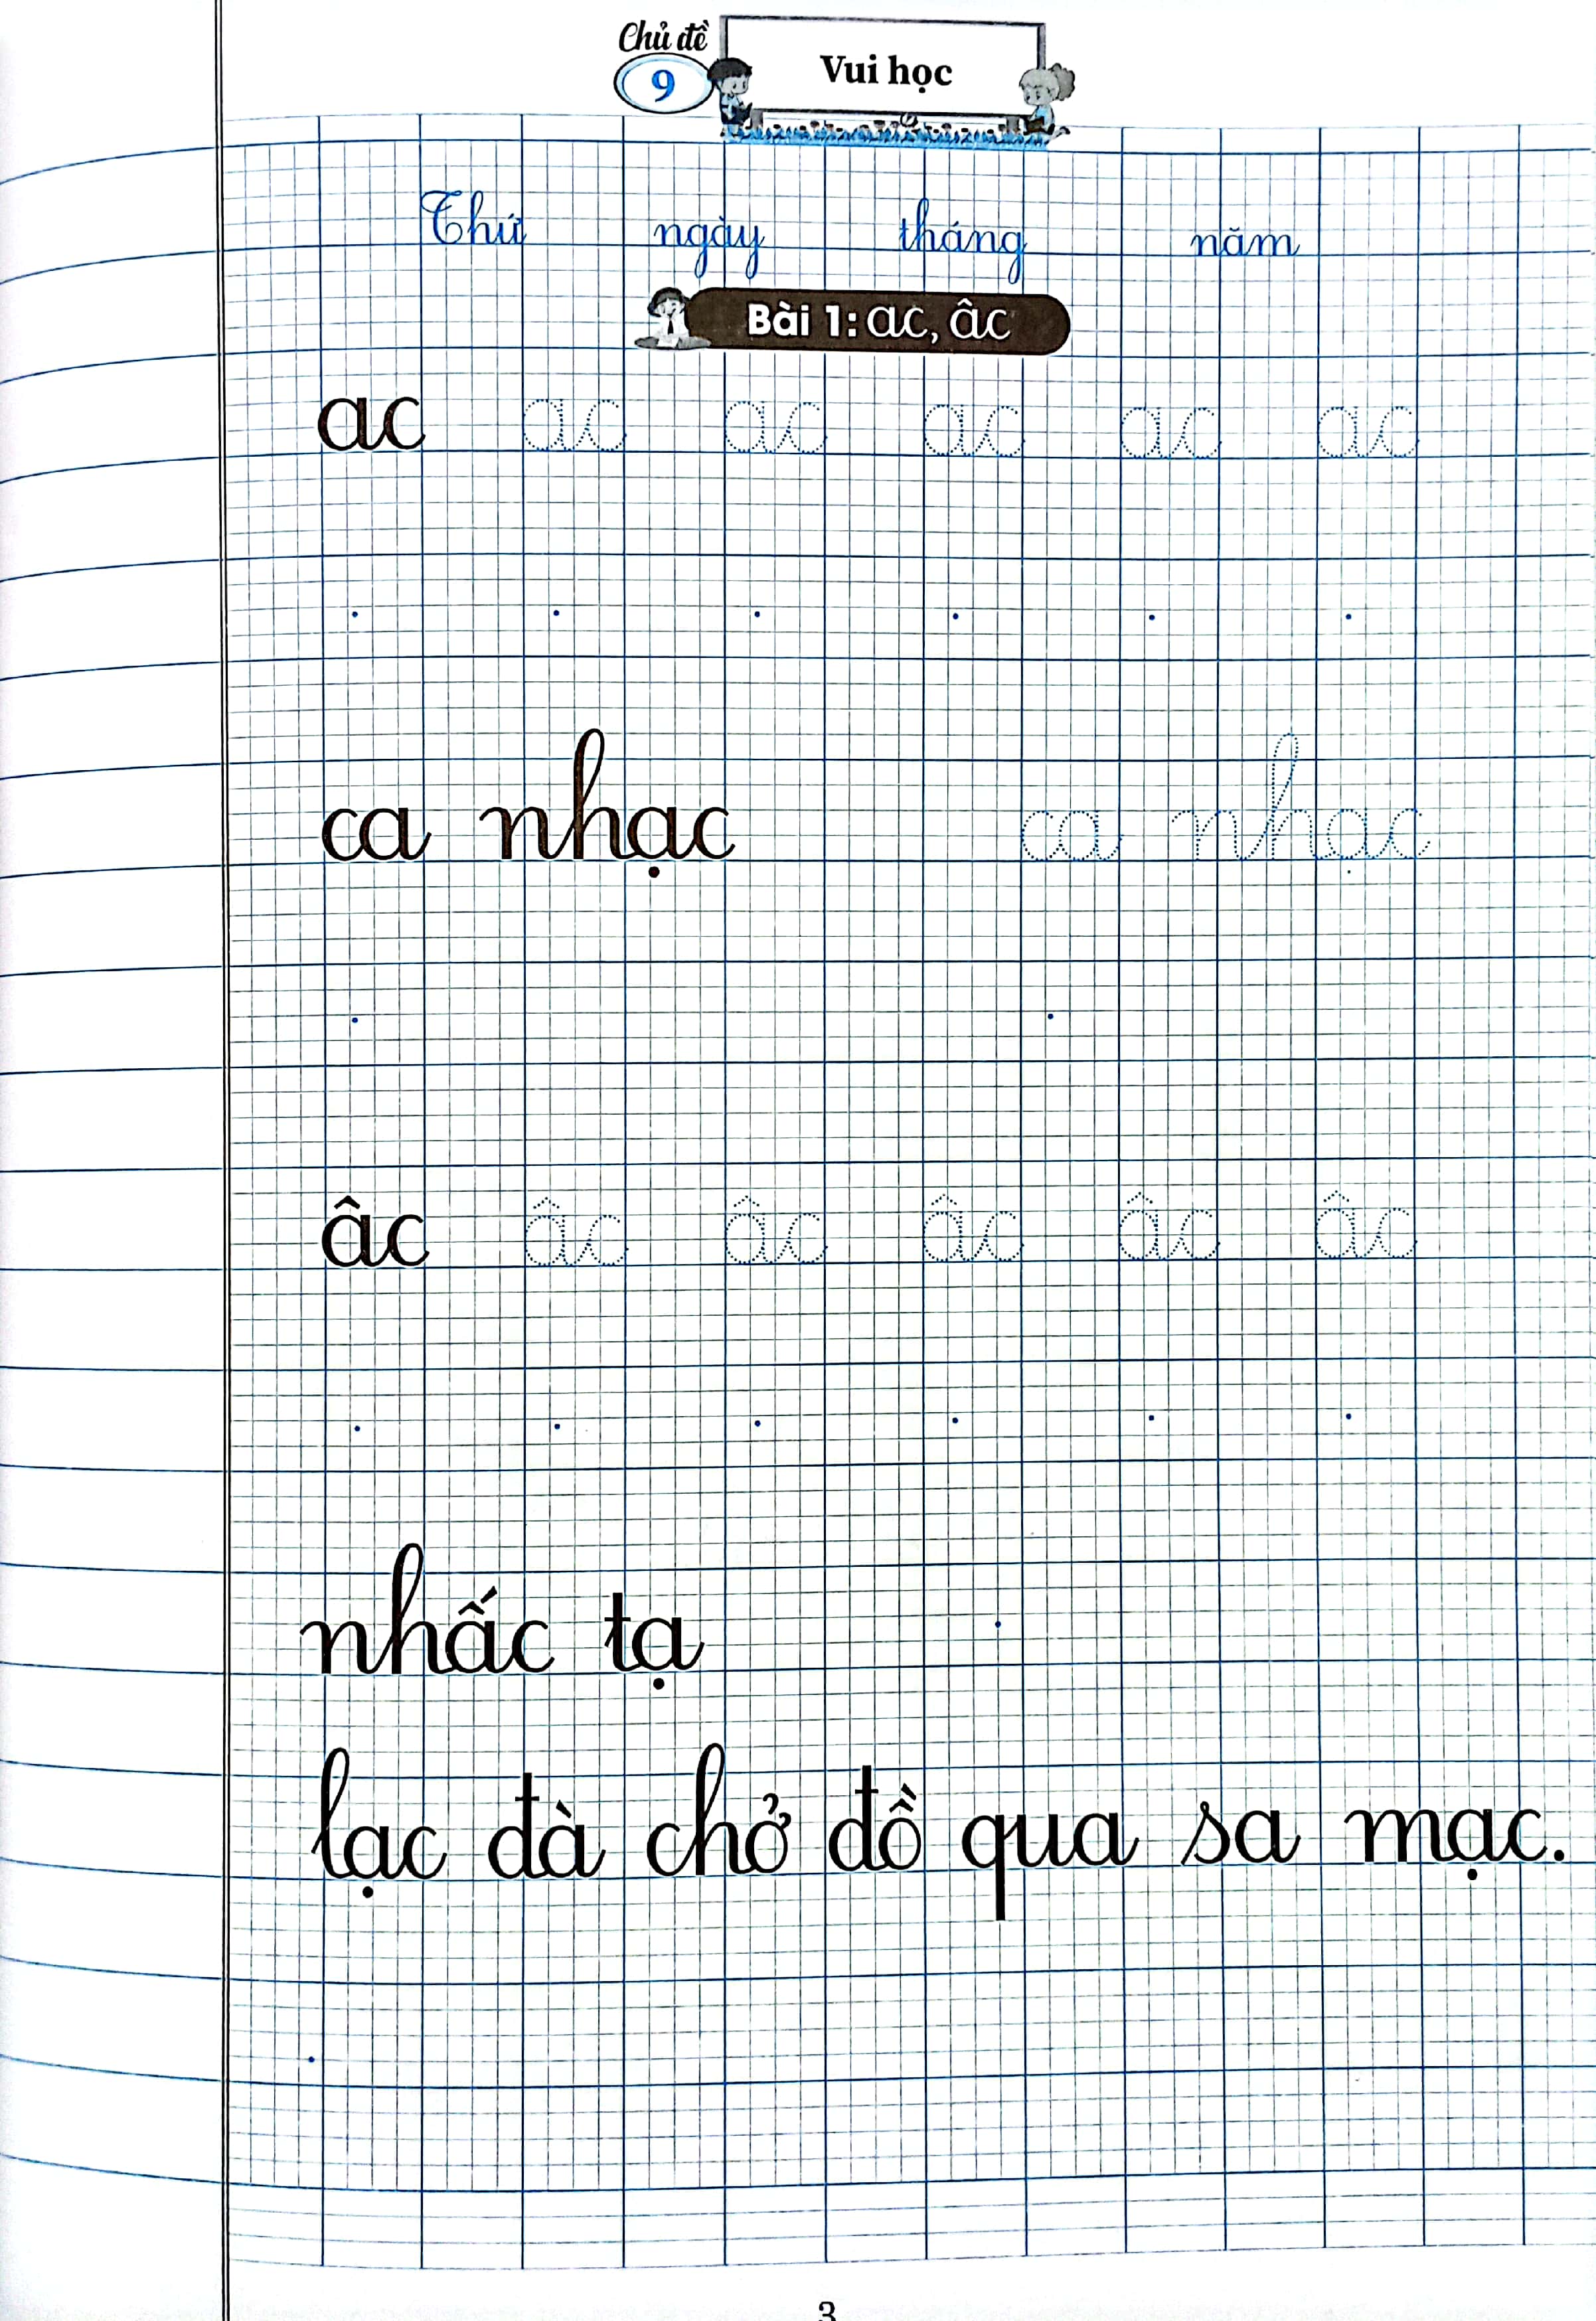 Chủ đề
9
Vui học
Thứ ngày tháng năm
Bài 1: ac, âc
ac ac ac ac ac ac
ca nhạc ca nhạc
âc âc âc âc âc âc
nhấc tạ
lạc đà chở đồ qua sa mạc.
3